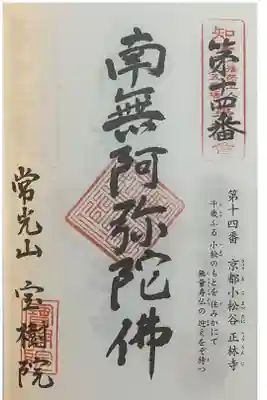 第十四番
南無阿弥陀佛
常光山 宝樹院
第十四番 京都小松谷 正林寺
千歳ふる 小松のもとを 住みかにて
無量寿仏の 迎えをぞ待つ